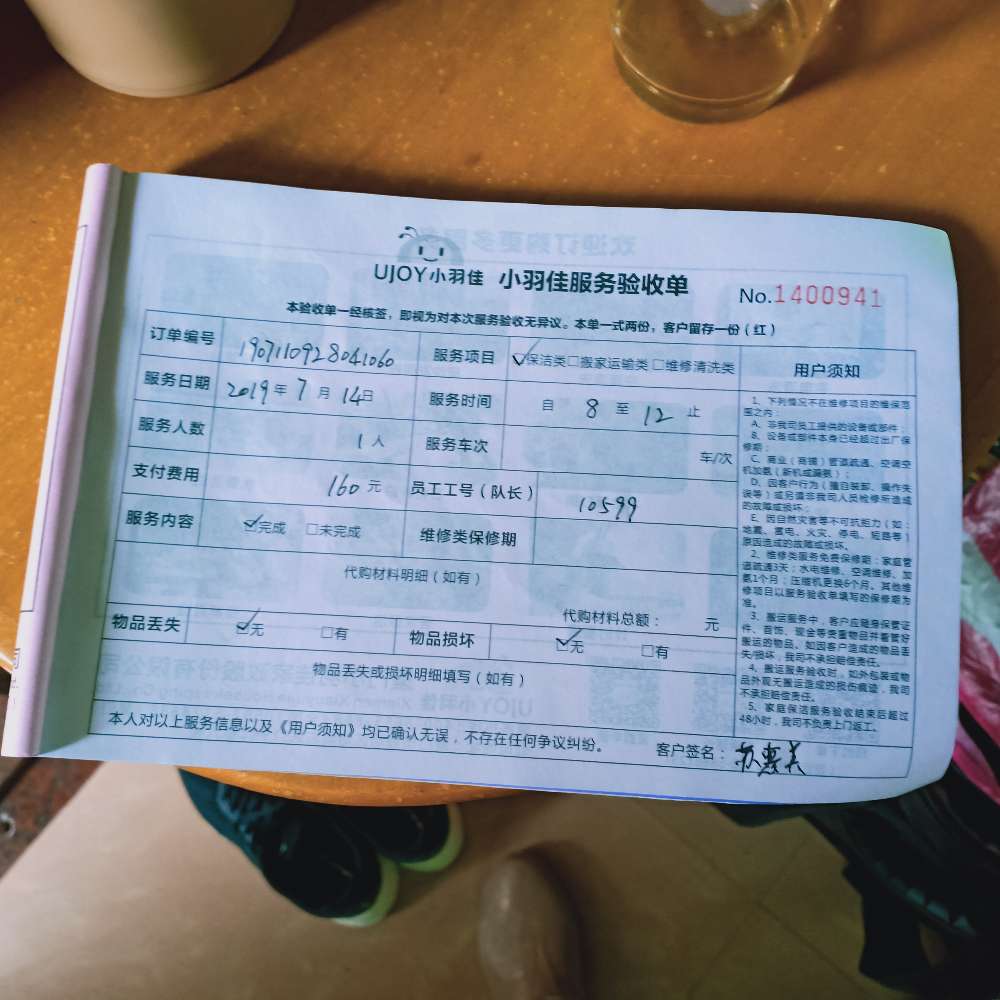 UJOY小羽佳 小羽佳服务验收单
No.1400941
本验收单一经核签，即视为对本次服务验收无异议。本单一式两份，客户留存一份（红）
订单编号 1907110928041060 服务项目 ☑保洁类☐搬家运输类☐维修清洗类
服务日期 2019年7月14日 服务时间 自 8 至 12 止
服务人数 1人 服务车次 车/次
支付费用 160元 员工工号（队长） 10599
服务内容 ☑完成 ☐未完成 维修类保修期
代购材料明细（如有）
代购材料总额： 元
物品丢失 ☑无 ☐有 物品损坏 ☑无 ☐有
物品丢失或损坏明细填写（如有）
本人对以上服务信息以及《用户须知》均已确认无误，不存在任何争议纠纷。 客户签名：苏惠美
用户须知
1、下列情况不在维修项目的维保范
围之内：
A、非我司员工提供的设备或部件；
B、设备或部件本身已经超过出厂保
修期；
C、商业（商铺）管道疏通、空调空
机加氨（新机或漏氨）；
D、因客户行为（擅自装卸、操作失
误等）或另请非我司人员检修所造成
的故障或损坏；
E、因自然灾害等不可抗阻力（如：
地震、雷电、火灾、停电、短路等）
原因造成的故障或损坏。
2、维修类服务免费保修期：家庭管
道疏通3天；水电维修、空调维修、加
氨1个月；压缩机更换6个月。其他维
修项目以服务验收单填写的保修期为
准。
3、搬运服务中，客户应随身保管证
件、首饰、现金等贵重物品并看管好
搬运的物品。如因客户造成的物品丢
失/损坏，我司不承担赔偿责任。
4、搬运服务验收时，如外包装或物
品外观无搬运造成的损伤痕迹，我司
不承担赔偿责任。
5、家庭保洁服务验收结束后超过
48小时，我司不负责上门返工。